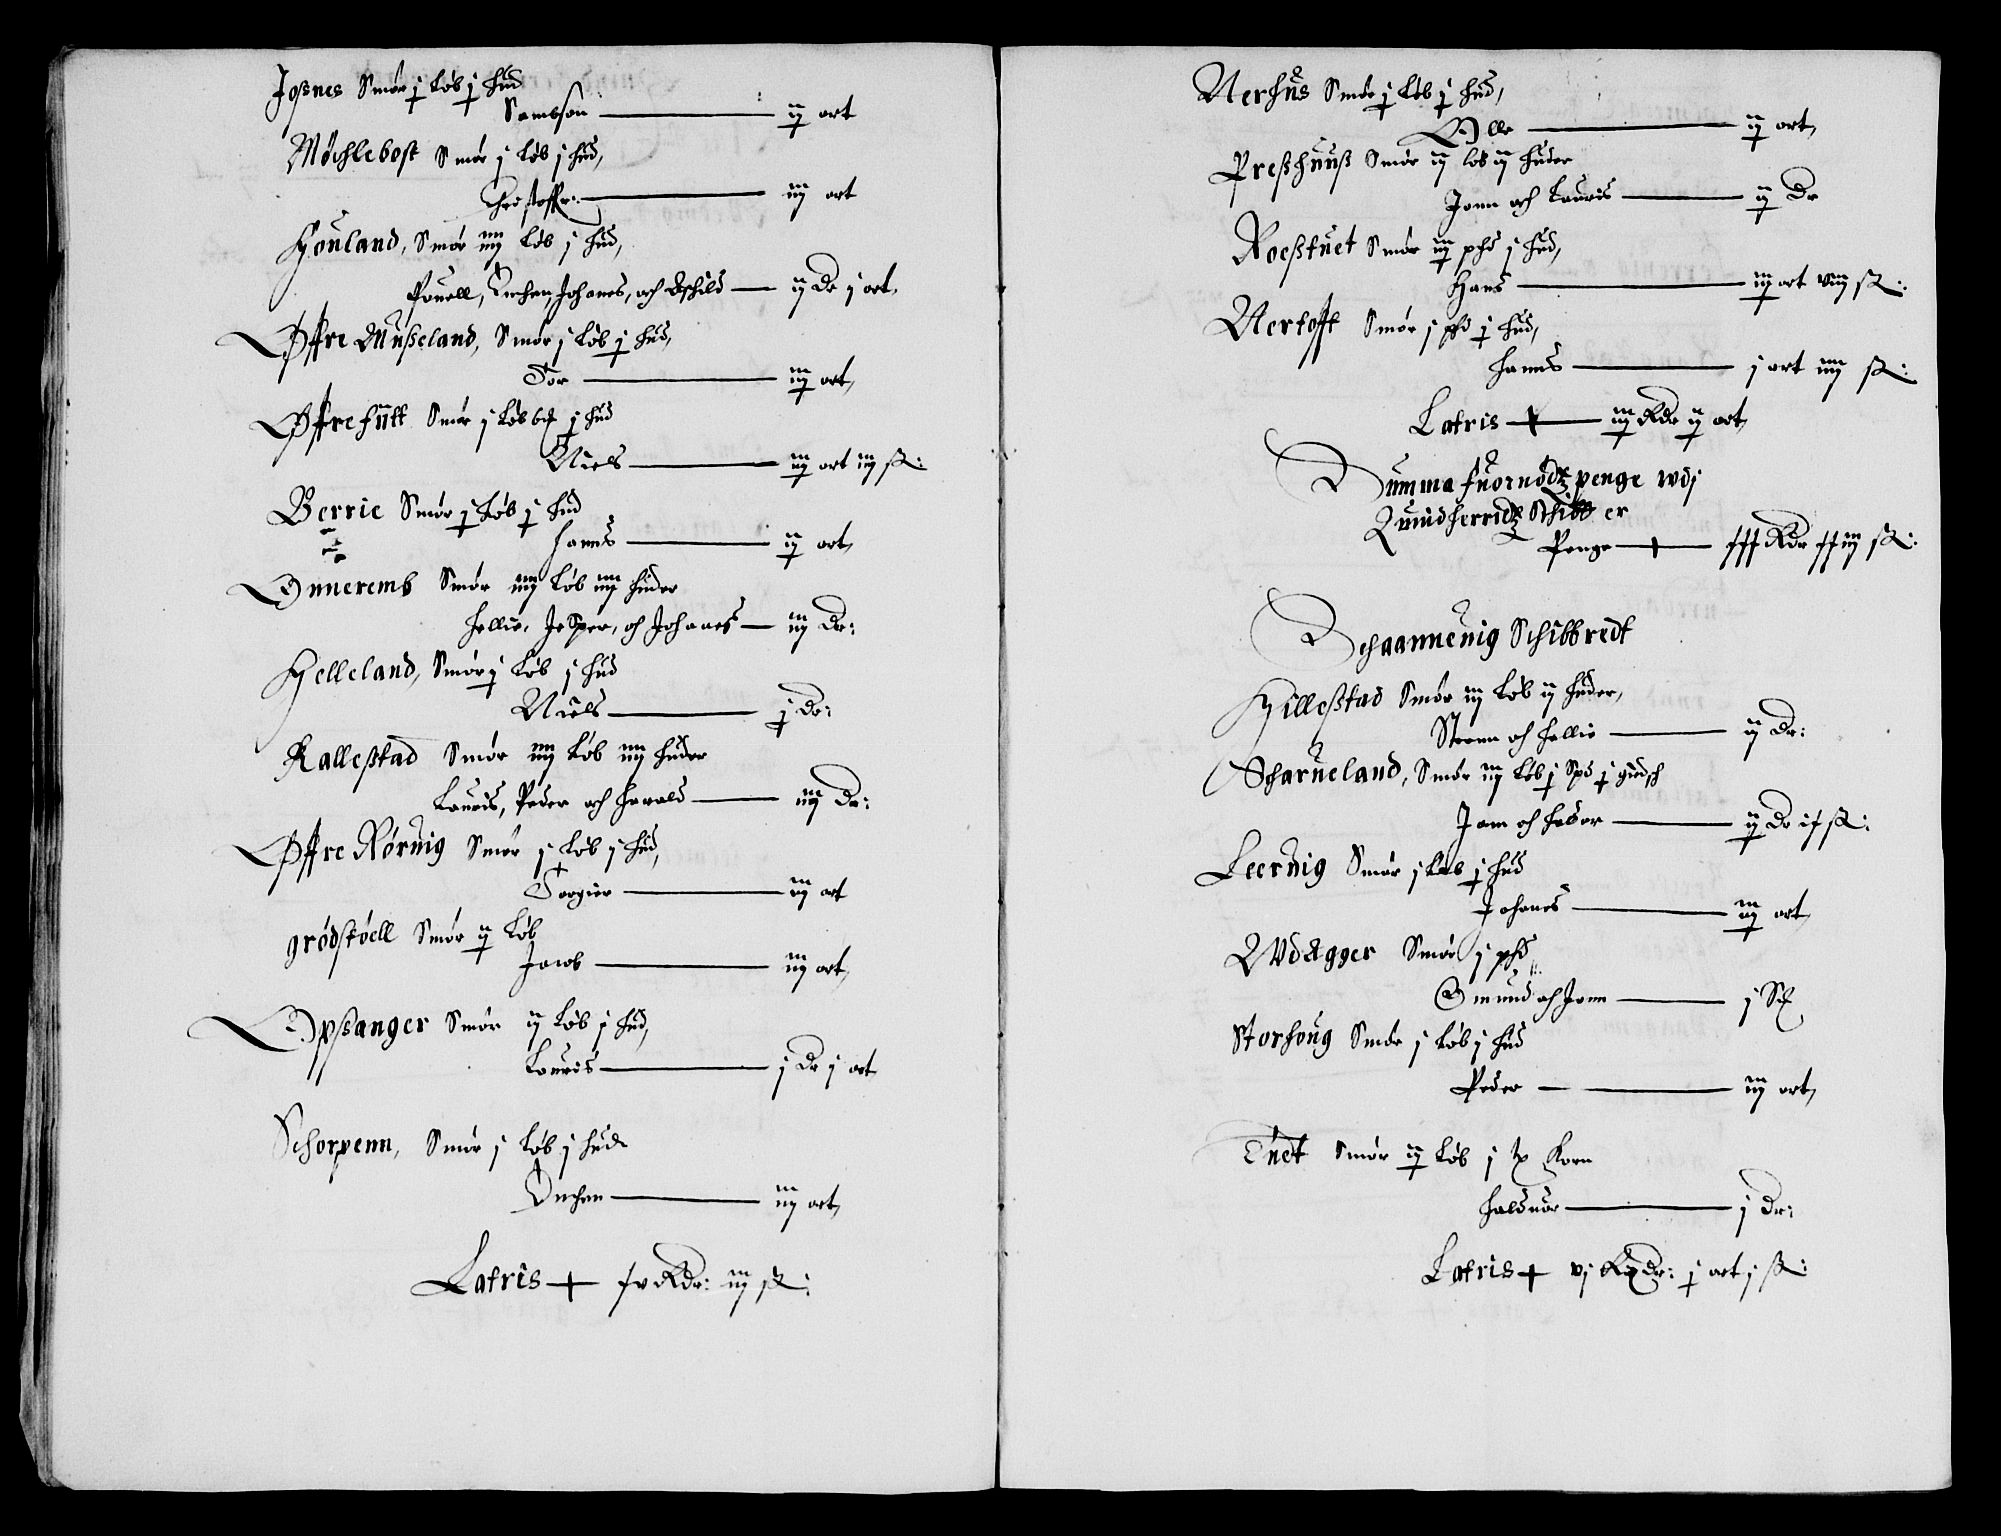 Joßnes Smør j Løb j hud
Sambson ij ort
Møchlebost Smør j Løb j hud,
Christoffer iij ort
Houland, Smør iiij Løb j hud,
Pouell, Anchen, Johanes, och Eschild ij Dr j ort,
Øffre Mußeland, Smør j Løb j hud,
Tor iij ort,
Øffrehutt Smør j Løb j hud
Niels iij ort iij ß:
Berrie Smør j Løb j hud
hanns ij ort,
Onneremb Smør iiij Løb iiij huder
hellie, Jesper, och Johanes iij Dr:
Helleland, Smør j Løb j hud
Niels j Dr:
Kalleßtad Smør iiij Løb iiij huder
Lauris, Peder och harald iij Dr:
Øffre Rørvig Smør j Løb j hud,
Torgier iij ort
grødstoell Smør ij Løb
Jacob iij ort,
Opßanger Smør ij Løb j hud,
Lauris j Dr j ort,
Schorpenn, Smør j Løb j hud
Anchen iij ort,
Latris xv Rdr: iij ß:
Nerhus Smør j Løb j hud,
Olle ij ort,
Preßhuuß Smør ij løb ij huder
Jonn och Lauris ij Dr
Roeßtuet Smør iij phd j hud,
Hans iij ort viij ß:
Nertofft Smør j pd j hud,
hanns j ort iiij ß:
Latris iij Rdr ij ort,
Summa fuornødtz penge wdj
Quindherridtz Schibber
Penge xxx Rdr xxiij ß:
Schaannevig Schibbredt
Hilleßtad Smør iij Løb ij huder,
Steenn och hellie ij Dr:
Scharueland, Smør iij Løb j Spd j giedsch
Jam och heder ij Dr ix ß:
Leervig Smør j Løb j hud
Johanes iij ort,
Wdagger Smør j phd
Omund och Jonn j
Storhoug Smør j Løb j hud
Peder iij ort,
Tuet Smør ij Løb j tp Korn
halduor j Dr:
Latris vj Rdr: j ort j ß: